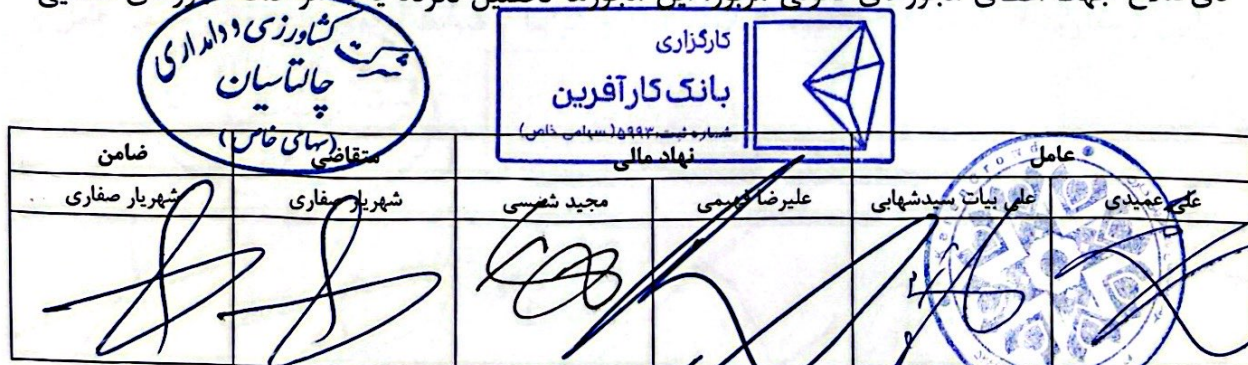 شرکت کشاورزی و دامداری
چالتاسیان
(سهامی خاص)
کارگزاری
بانک کارآفرین
شماره ثبت: ۵۹۹۳ (سهامی خاص)
عامل نهاد مالی متقاضی ضامن
علی عمیدی علی بیات سیدشهابی علیرضا فهیمی مجید شمسی شهریار صفاری شهریار صفاری